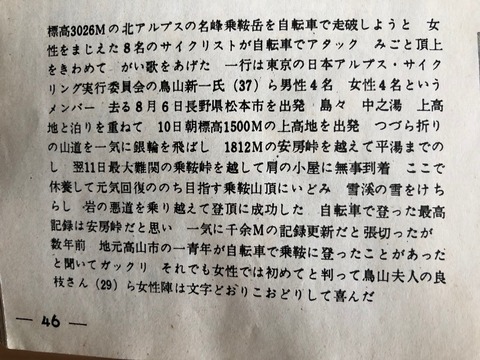 標高3026Mの北アルプスの名峰乗鞍岳を自転車で走破しようと　女
性をまじえた8名のサイクリストが自転車でアタック　みごと頂上
をきわめて　がい歌をあげた　一行は東京の日本アルプス・サイク
リング実行委員会の鳥山新一氏（37）ら男性4名　女性4名という
メンバー　去る8月6日長野県松本市を出発　島々　中之湯　上高
地と泊りを重ねて　10日朝標高1500Mの上高地を出発　つづら折り
の山道を一気に銀輪を飛ばし　1812Mの安房峠を越えて平湯までの
し　翌11日最大難関の乗鞍峠を越して肩の小屋に無事到着　ここで
休養して元気回復ののち目指す乗鞍山頂にいどみ　雪渓の雪をけち
らし　岩の悪道を乗り越えて登頂に成功した　自転車で登った最高
記録は安房峠だと思い　一気に千余Mの記録更新だと張切ったが
数年前　地元高山市の一青年が自転車で乗鞍に登ったことがあった
と聞いてガックリ　それでも女性では初めてと判って鳥山夫人の良
枝さん（29）ら女性陣は文字どおりこおどりして喜んだ
— 46 —